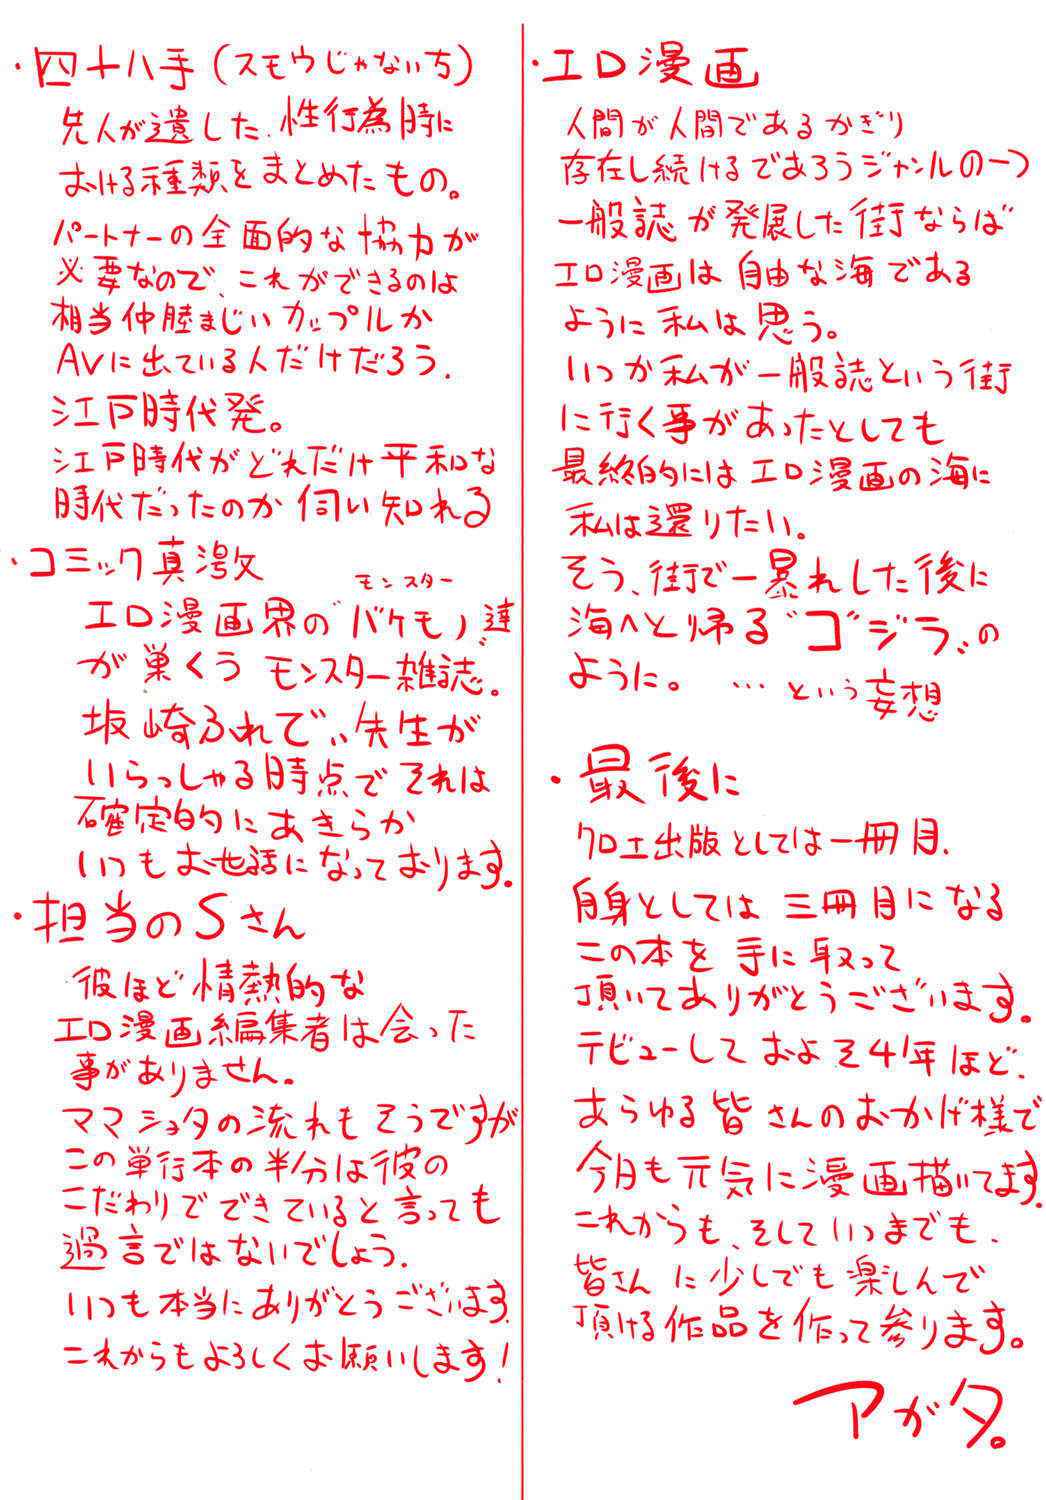 ・四十八手(スモウじゃない方)
先人が遺した、性行為時に
おける種類をまとめたもの。
パートナーの全面的な協力が
必要なので、これができるのは
相当仲睦まじいカップルか
AVに出ている人だけだろう.
江戸時代発。
江戸時代がどれだけ平和な
時代だったのか伺い知れる
・コミック真激
モンスター
エロ漫画界の"バケモノ達"
が巣くうモンスター雑誌。
坂崎ふれでぃ先生が
いらっしゃる時点でそれは
確定的にあきらか
いつもお世話になっております。
・担当のSさん
彼ほど情熱的な
エロ漫画編集者は会った
事がありません。
ママショタの流れもそうですが
この単行本の半分は彼の
こだわりでできていると言っても
過言ではないでしょう.
いつも本当にありがとうございます.
これからもよろしくお願いします!
・エロ漫画
人間が人間であるかぎり
存在し続けるであろうジャンルの一つ
一般誌が発展した街ならば
エロ漫画は自由な海である
ように私は思う。
いつか私が一般誌という街
に行く事があったとしても
最終的にはエロ漫画の海に
私は還りたい。
そう、街で一暴れした後に
海へと帰る"ゴジラ"の
ように。 …という妄想
・最後に
クロエ出版としては一冊目.
自身としては三冊目になる
この本を手に取って
頂いてありがとうございます。
デビューしておよそ4年ほど.
あらゆる皆さんのおかげ様で
今月も元気に漫画描いてます.
これからも、そしていつまでも.
皆さんに少しでも楽しんで
頂ける作品を作って参ります。
アガタ。